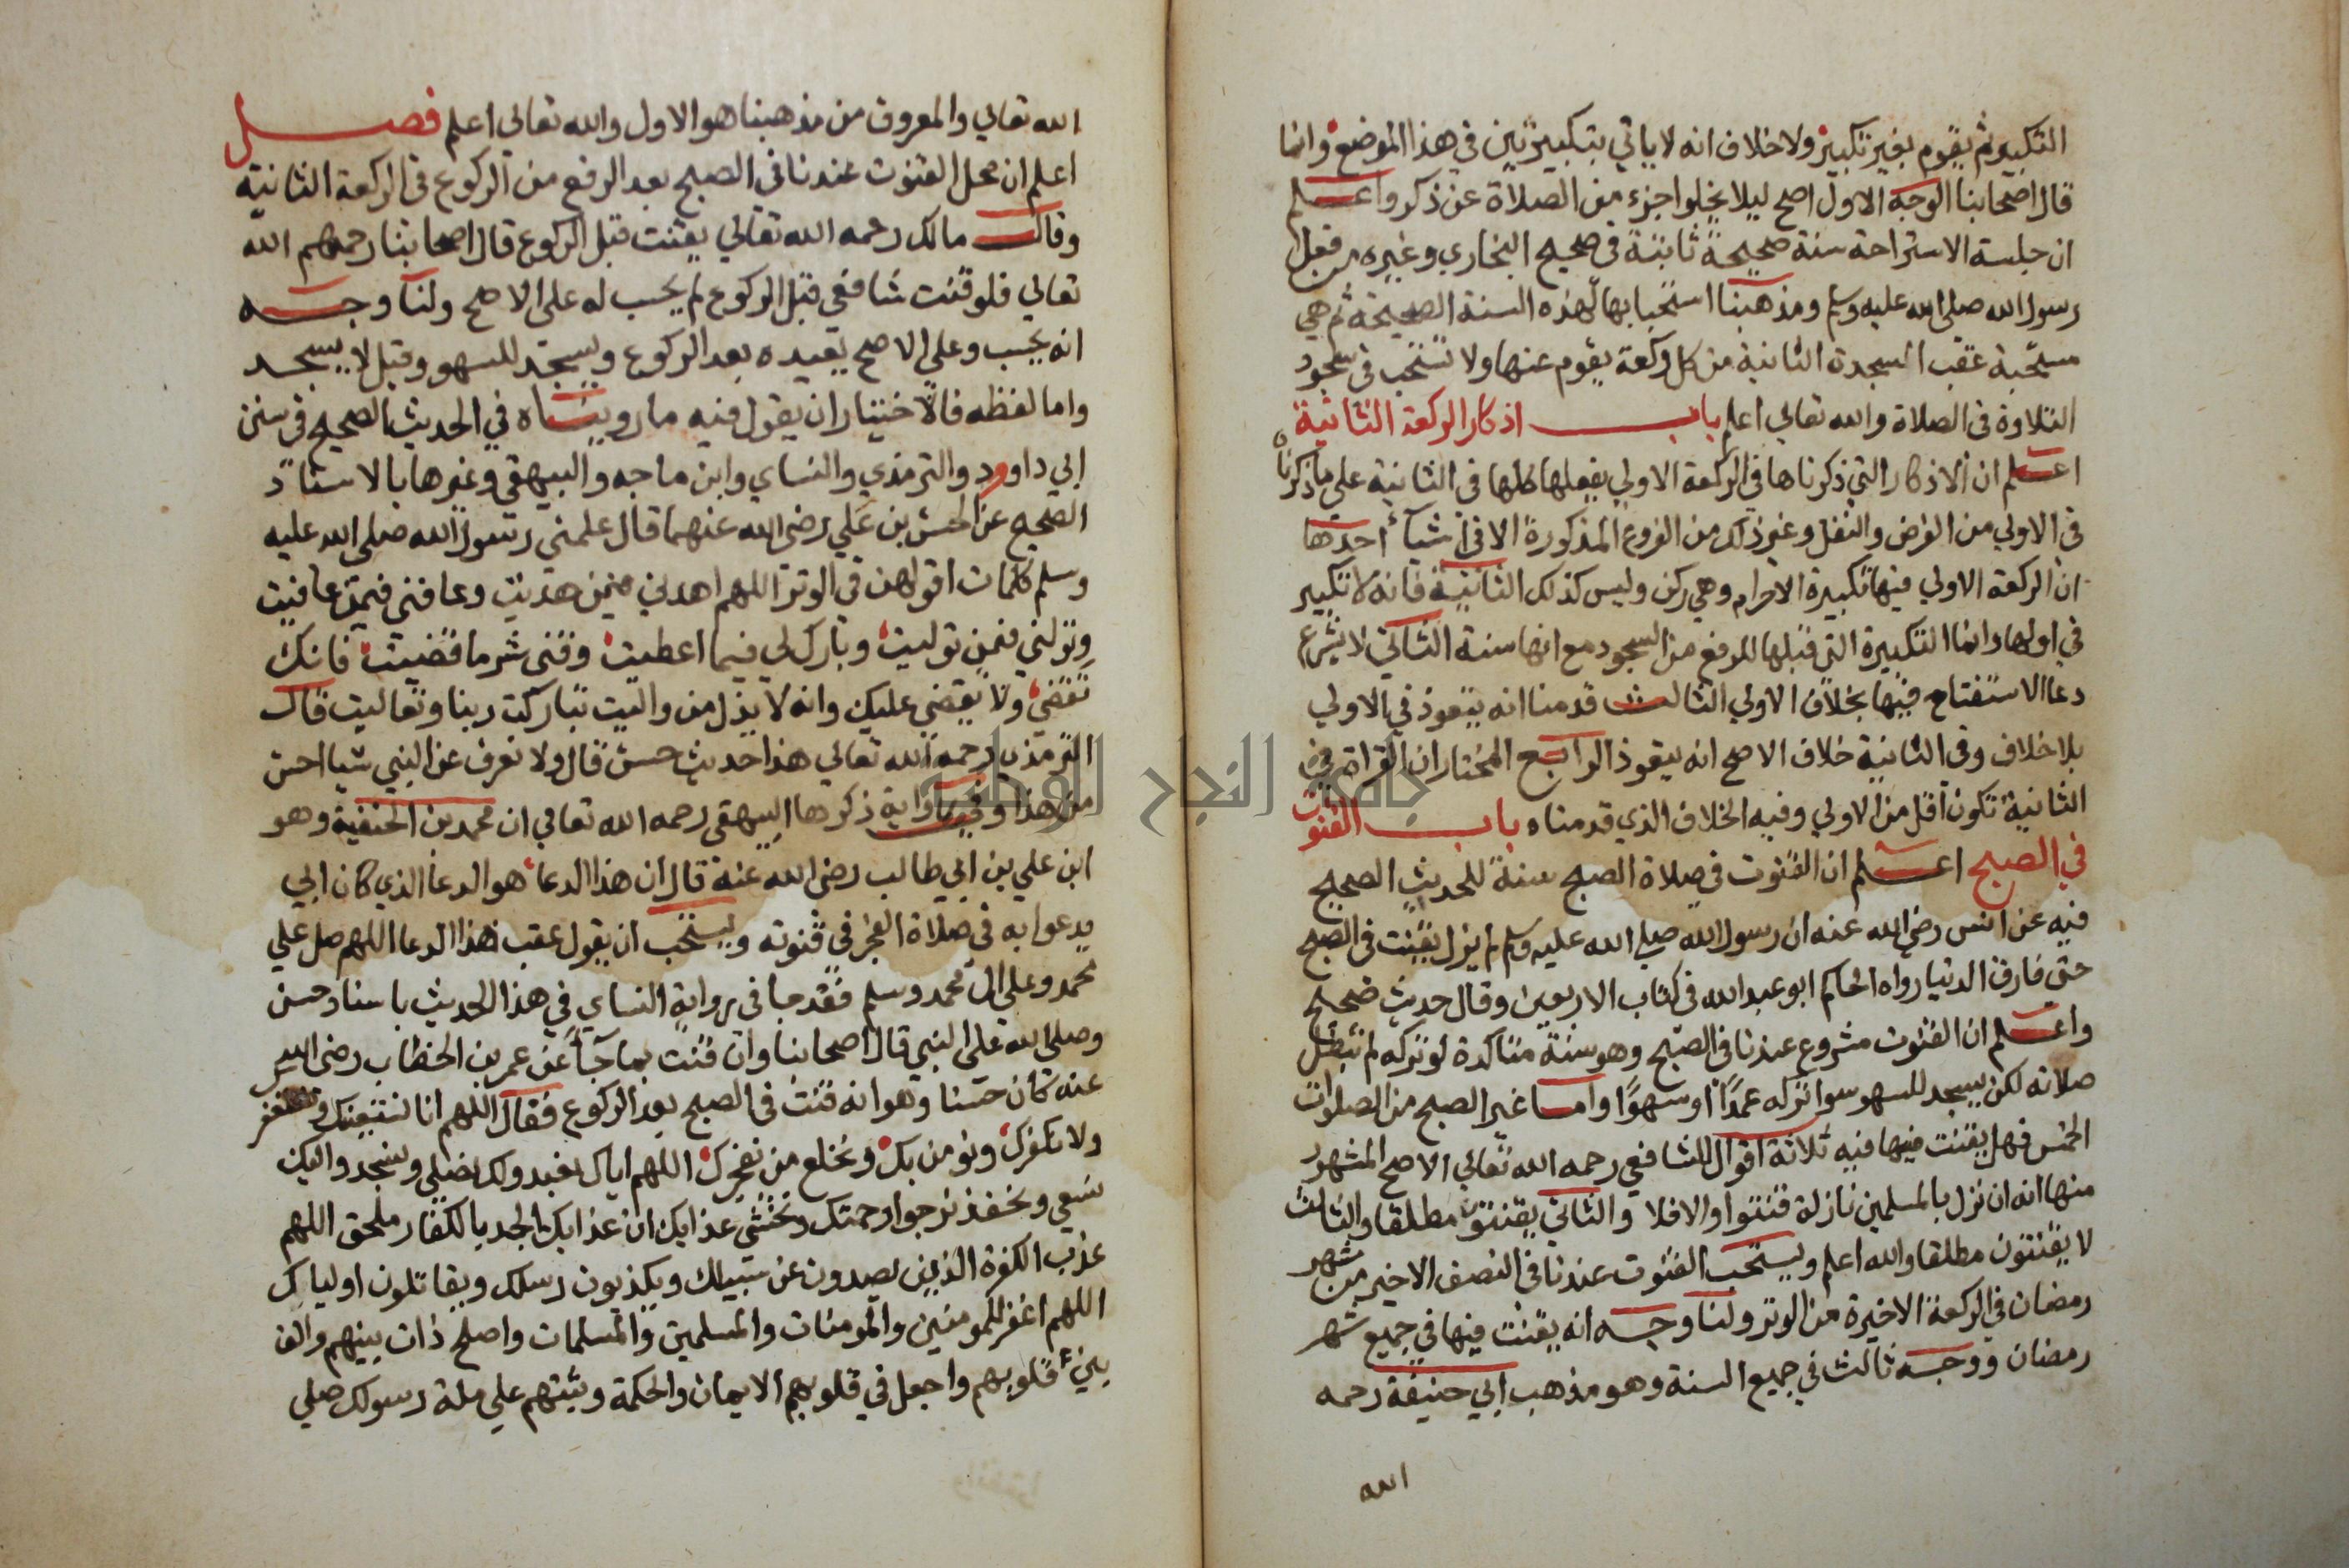 التكبير ثم يقوم بغير تكبير ولا خلاف انه لا ياتي بتكبيرتين في هذا الموضع وانما
قال اصحابنا الوجه الاول اصح ليلا يخلوا جزء من الصلاة عن ذكر واعلم
ان جلسة الاستراحة سنة صحيحة ثابتة في صحيح البخاري وغيره من فعل
رسول الله صلى الله عليه وسلم ومذهبنا استحبابها لهذه السنة الصحيحة ثم هي
مستحبة عقب السجدة الثانية من كل ركعة يقوم عنها ولا تستحب في سجود
التلاوة في الصلاة والله تعالي اعلم باب اذكار الركعة الثانية
اعلم ان الاذكار التي ذكرناها في الركعة الاولي يفعلها كلها في الثانية علي ما ذكرنا
في الاولي من الفرض والنفل وغير ذلك من الفروع المذكورة الا في اشيآء احدها
ان الركعة الاولي فيها تكبيرة الاحرام وهي ركن وليس كذلك الثانية فانه لا تكبير
في اولها وانما التكبيرة التي قبلها للرفع من السجود مع انها سنة الثاني لا يشرع
دعا الاستفتاح فيها بخلاف الاولي الثالث قدمنا انه يتعوذ في الاولي
بلا خلاف وفي الثانية خلاف الاصح انه يتعوذ الرابع المختار ان القراة في
الثانية تكون اقل من الاولي وفيه الخلاف الذي قدمناه باب القنوت
في الصبح اعلم ان القنوت في صلاة الصبح سنة للحديث الصحيح
فيه عن انس رضي الله عنه ان رسول الله صلي الله عليه وسلم لم يزل يقنت في الصبح
حتي فارق الدنيا رواه الحاكم ابو عبد الله في كتاب الاربعين وقال حديث صحيح
واعلم ان القنوت مشروع عندنا في الصبح وهو سنة متاكدة لو تركه لم تبطل
صلاته لكن يسجد للسهو سوا تركه عمدًا او سهوًا واما غير الصبح من الصلوات
الخمس فهل يقنت فيها فيه ثلاثة اقوال للشافعي رحمه الله تعالي الاصح المشهور
منها انه ان نزل بالمسلمين نازلة قنتوا والا فلا والثاني يقنتون مطلقا والثالث
لا يقنتون مطلقا والله اعلم ويستحب القنوت عندنا في النصف الاخير من شهر
رمضان في الركعة الاخيرة من الوتر ولنا وجه انه يقنت فيها في جميع شهر
رمضان ووجه ثالث في جميع السنة وهو مذهب ابي حنيفة رحمه
الله
الله تعالي والمعروف من مذهبنا هو الاول والله تعالي اعلم فصل
اعلم ان محل القنوت عندنا في الصبح بعد الرفع من الركوع في الركعة الثانية
وقال مالك رحمه الله تعالي يقنت قبل الركوع قال اصحابنا رحمهم الله
تعالي فلو قنت شافعي قبل الركوع لم يحسب له على الاصح ولنا وجه
انه يحسب وعلي الاصح يعيده بعد الركوع ويسجد للسهو وقيل لا يسجد
واما لفظه فالاختيار ان يقول فيه ما رويناه في الحديث الصحيح في سنن
ابي داوود والترمذي والنساي وابن ماجه والبيهقي وغيرها بالاسناد
الصحيح عن الحسن بن علي رضي الله عنهما قال علمني رسول الله صلي الله عليه
وسلم كلمات اقولهن في الوتر اللهم اهدني فيمن هديت وعافني فيمن عافيت
وتولني فيمن توليت وبارك لي فيما اعطيت وقني شر ما قضيت فانك
تقضي ولا يقضي عليك وانه لا يذل من واليت تباركت ربنا وتعاليت قال
الترمذي رحمه الله تعالي هذا حديث حسن قال ولا نعرف عن النبي شيا احسن
من هذا وفي رواية ذكرها البيهقي رحمه الله تعالي ان محمد بن الحنفية وهو
ابن علي بن ابي طالب رضي الله عنه قال ان هذا الدعا هو الدعا الذي كان ابي
يدعوا به في صلاة الفجر في قنوته ويستحب ان يقول عقب هذا الدعا اللهم صل علي
محمد وعلي ال محمد وسلم فقد جا في رواية النساي في هذا الحديث باسناد حسن
وصلي الله علي النبي قال اصحابنا وان قنت بما جآء عن عمر بن الخطاب رضي الله
عنه كان حسنا وهو انه قنت في الصبح بعد الركوع فقال اللهم انا نستعينك ونستغفرك
ولا نكفرك ونومن بك ونخلع من يفجرك اللهم اياك نعبد ولك نصلي ونسجد واليك
نسعي ونحفد نرجوا رحمتك ونخشي عذابك ان عذابك الجد بالكفار ملحق اللهم
عذب الكفرة الذين يصدون عن سبيلك ويكذبون رسلك ويقاتلون اولياك
اللهم اغفر للمومنين والمومنات والمسلمين والمسلمات واصلح ذات بينهم والف
بين قلوبهم واجعل في قلوبهم الايمان والحكمة وثبتهم علي ملة رسولك صلي
جامعة النجاح الوطنية